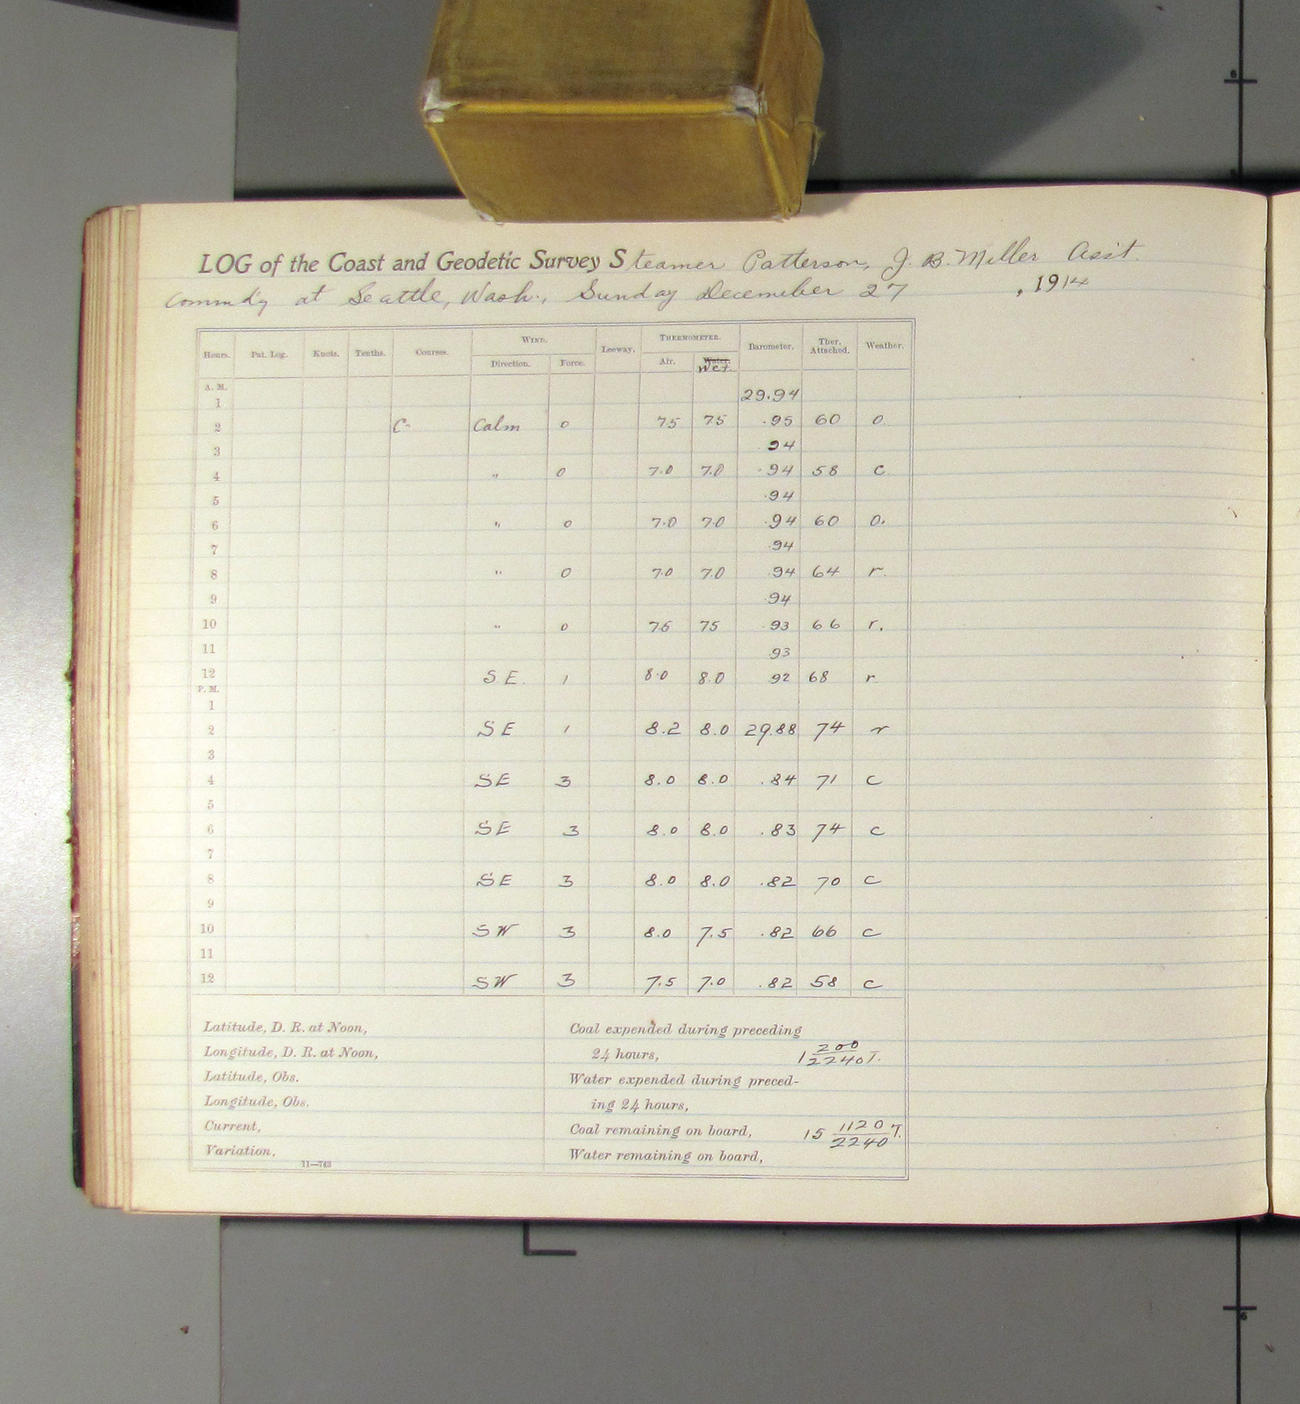 LOG of the Coast and Geodetic Survey Steamer Patterson, J. B. Miller Asst.
Commd'g at Seattle, Wash., Sunday December 27, 1914
Hours. Pat. Log. Knots. Tenths. Courses. WIND. Direction. Force. Leeway. THERMOMETER. Air. Water. Wet. Barometer. Ther. Attached. Weather.
A. M.
1 29.94
2 C- Calm 0 75 75 .95 60 o.
3 .94
4 " 0 7.0 7.0 .94 58 c
5 .94
6 " 0 7.0 7.0 .94 60 o.
7 .94
8 " 0 7.0 7.0 .94 64 r.
9 .94
10 " 0 75 75 .93 66 r.
11 .93
12 SE. 1 8.0 8.0 92 68 r
P. M.
1
2 SE 1 8.2 8.0 29.88 74 r
3
4 SE 3 8.0 8.0 .84 71 c
5
6 SE 3 8.0 8.0 .83 74 c
7
8 SE 3 8.0 8.0 .82 70 c
9
10 SW 3 8.0 7.5 .82 66 c
11
12 SW 3 7.5 7.0 .82 58 c
Latitude, D. R. at Noon,
Longitude, D. R. at Noon,
Latitude, Obs.
Longitude, Obs.
Current,
Variation,
11—763
Coal expended during preceding
24 hours, 1 200/2240 T.
Water expended during preced-
ing 24 hours,
Coal remaining on board, 15 1120/2240 T.
Water remaining on board,